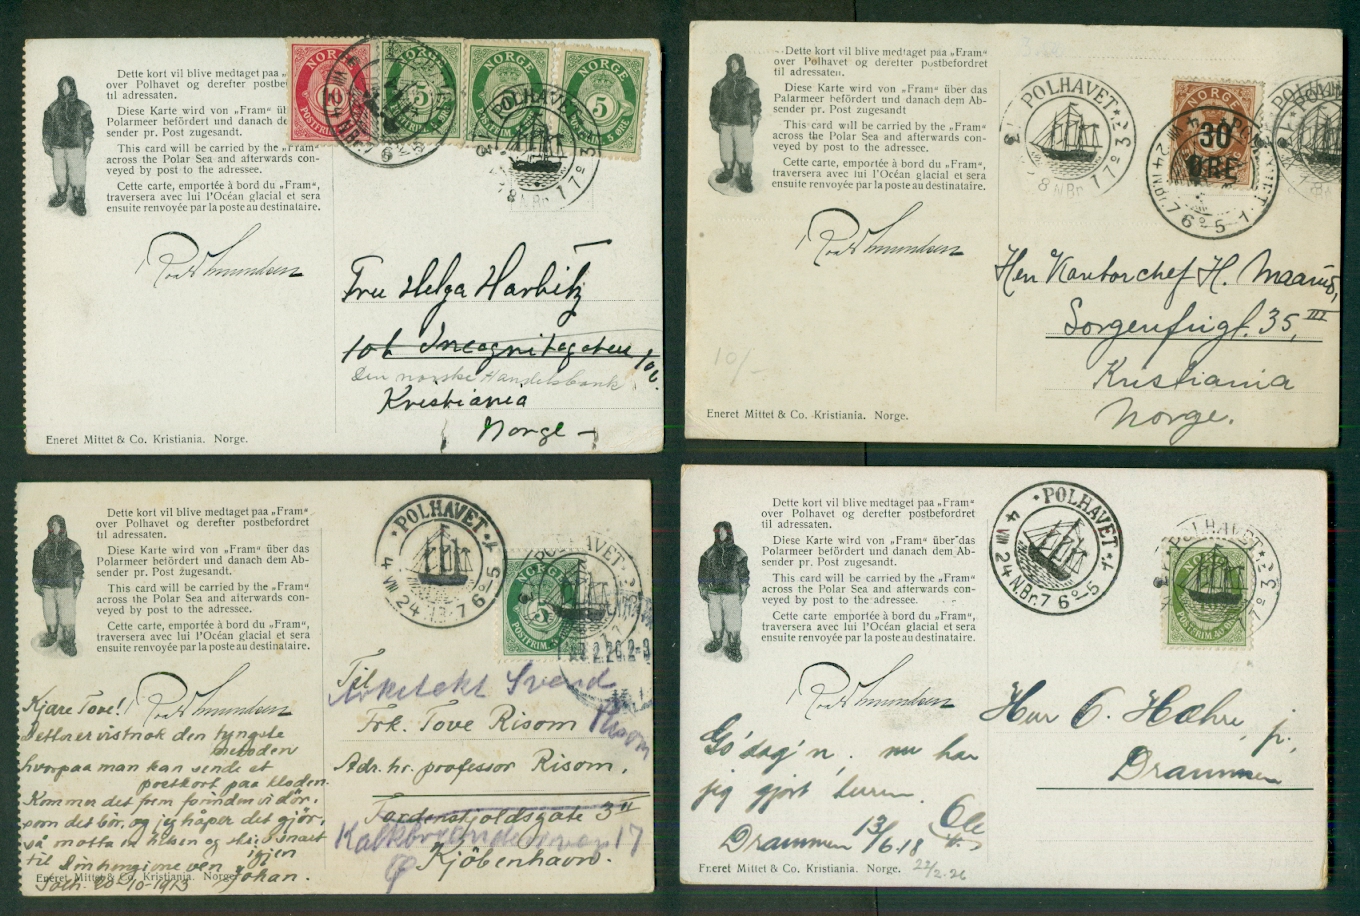 Dette kort vil blive medtaget paa „
over Polhavet og derefter postbef
til adressaten.
Diese Karte wird von „Fram“ üb
Polarmeer befördert und danach de
sender pr. Post zugesandt.
This card will be carried by the „Fram“
across the Polar Sea and afterwards con-
veyed by post to the adressee.
Cette carte, emportée à bord du „Fram“,
traversera avec lui l'Océan glacial et sera
ensuite renvoyée par la poste au destinataire.
Roald Amundsen
NORGE NORGE NORGE NORGE
5
5 ØRE
POLHAVET
Fru Helga Harbitz
106 Incognitogaten
Den norske Handelsbank
Kristiania
Norge
Eneret Mittet & Co. Kristiania. Norge.
Dette kort vil blive medtaget paa „Fram“
over Polhavet og derefter postbefordret
til adressaten.
Diese Karte wird von „Fram“ über das
Palarmeer befördert und danach dem Ab-
sender pr. Post zugesandt.
This card will be carried by the „Fram“
across the Polar Sea and afterwards con-
veyed by post to the adressee.
Cette carte, emportée à bord du „Fram“,
traversera avec lui l'Océan glacial et sera
ensuite renvoyée par la poste au destinataire.
Roald Amundsen
POLHAVET
NORGE
30
ØRE
Herr Kontorchef H. Maarud,
Sorgenfrigt. 35, III
Kristiania
Norge.
10/-
Eneret Mittet & Co. Kristiania. Norge.
Dette kort vil blive medtaget paa „Fram“
over Polhavet og derefter postbefordret
til adressaten.
Diese Karte wird von „Fram“ über das
Polarmeer befördert und danach dem Ab-
sender pr. Post zugesandt.
This card will be carried by the „Fram“
across the Polar Sea and afterwards con-
veyed by post to the adressee.
Cette carte, emportée à bord du „Fram“,
traversera avec lui l'Océan glacial et sera
ensuite renvoyée par la poste au destinataire.
Roald Amundsen
POLHAVET
4 VIII 24 N.Br. 7 6º-5
NORGE
5
POSTFRIM.
Kjære Tove!
Dette er vistnok den tyngste
metoden
hvorpaa man kan sende et
postkort paa kloden.
Kommer det frem forinden vi dör,
som det bör, og jeg håper det gjör,
så motta en hilsen og
til
igjen
ven Johan.
20-10-1913
Til
Arkitekt Svend
Risom
Frk. Tove Risom
Adr. hr. professor Risom.
Tordenskjoldsgate 3 II
Kalkbrænderivej 17
Kjöbenhavn.
Eneret Mittet & Co. Kristiania. Norge
Dette kort vil blive medtaget paa „Fram“
over Polhavet og derefter postbefordret
til adressaten.
Diese Karte wird von „Fram“ über das
Polarmeer befördert und danach dem Ab-
sender pr. Post zugesandt.
This card will be carried by the „Fram“
across the Polar Sea and afterwards con-
veyed by post to the adressee.
Cette carte emportée à bord du „Fram“,
traversera avec lui l'Océan glacial et sera
ensuite renvoyée par la poste au destinataire.
Roald Amundsen
POLHAVET
4 VIII 24 N.Br. 7 6º-5
POLHAVET
NORGE
Go'dag'n, nu har
jeg gjort turen.
Ole
Drammen 13/6.18
22/2.26
Herr C. Hæhre, jr,
Drammen
Eneret Mittet & Co. Kristiania. Norge.